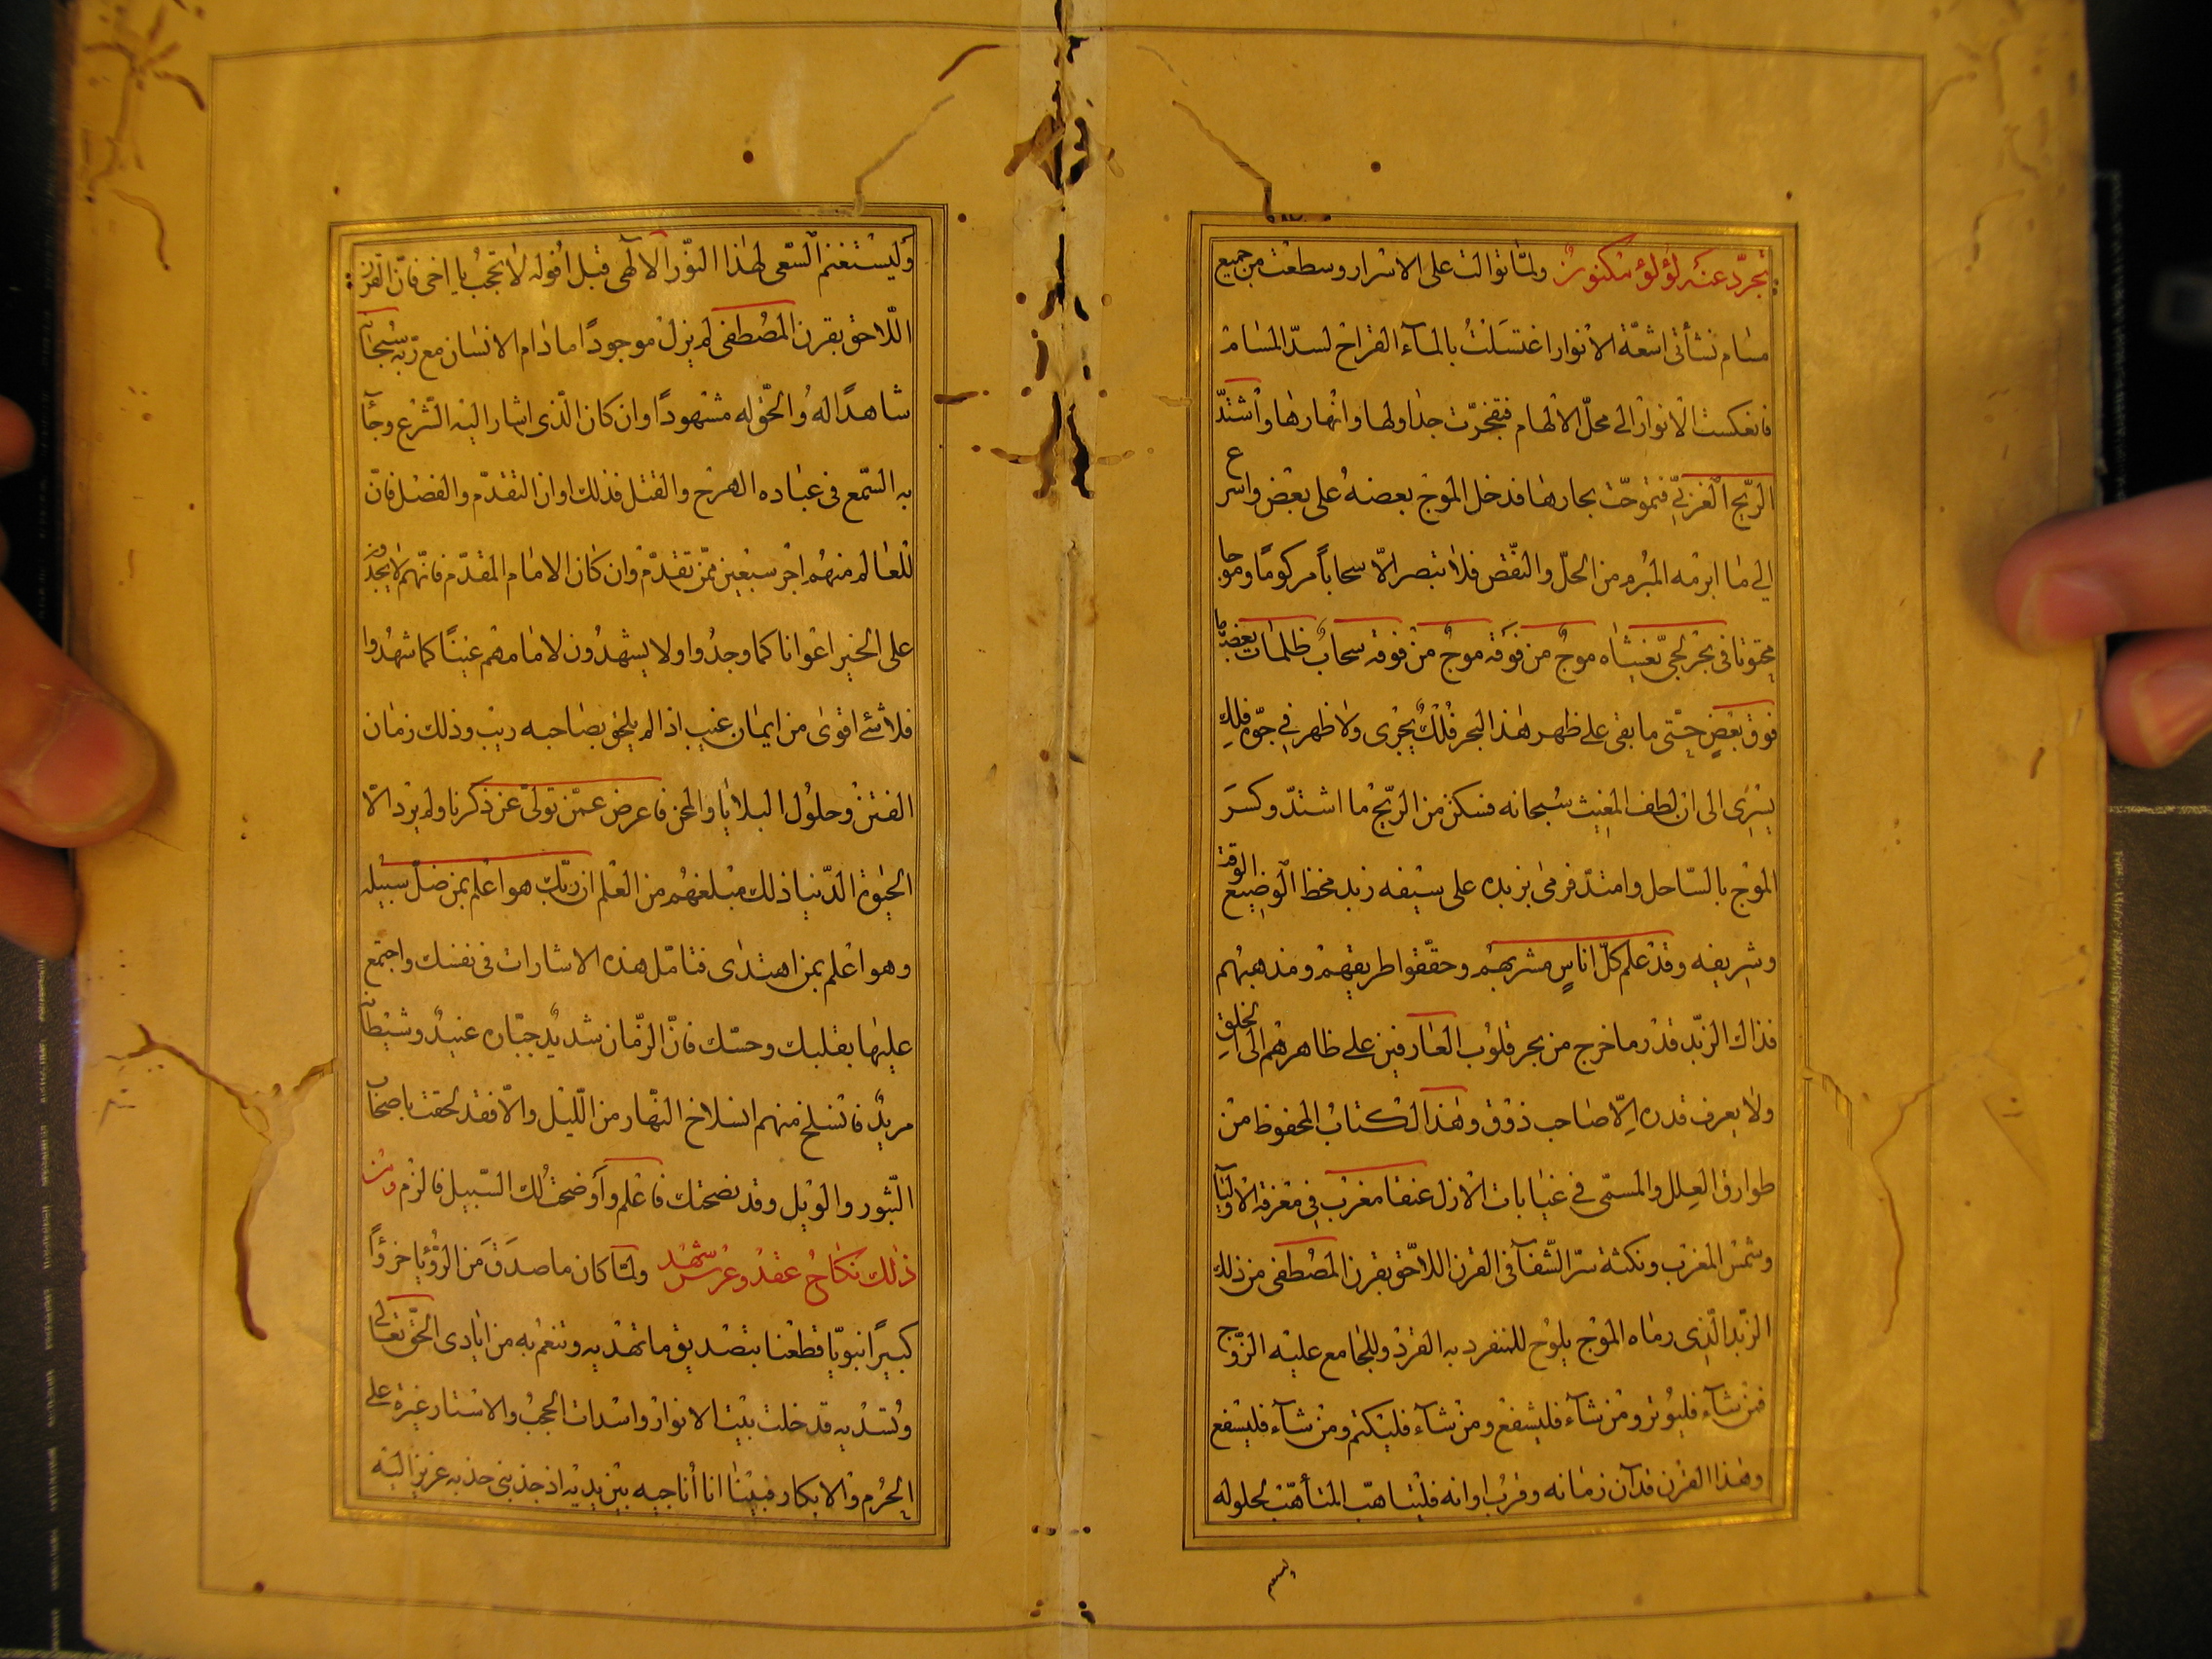 تجرّد عنه لؤلؤ مكنون ولمّا توالت على الاسرار وسطعت من جميع
مسام نشأتى اشعّة الانوار اغتسلتُ بالمآء القراح لسدّ المسام
فانعكست الانوار الى محلّ الالهام فتفجّرت جداولها وانهارها واشتدّ
الرّيح الغربىّ فتموّجت بحارها فدخل الموج بعضه على بعض واسرع
الى ما ابرمه المبرم من الحلّ والنقض فلا تبصر الّا سحاباً مركومًا وموجا
مختوتا فى بحر لجىّ يغشاه موج من فوقه موج من فوقه سحاب ظلمات بعضها
فوق بعض حتّى ما بقى على ظهر هذا البحر فلك يجرى ولا ظهر فى جوّه فلك
يسرى الى ان لطف المغيث سبحانه فسكن من الرّيح ما اشتدّ وكسر
الموج بالسّاحل وامتدّ فرمى بزبده على سيفه زبد مخط الوضيع الوقت
وشريفه وقد علم كلّ اناسٍ مشربهم وحقّقوا طريقهم ومذهبهم
فذاك الزبد قدر ما خرج من بحر قلوب العارفين على ظاهرهم الى الخلق
ولا يعرف قدره الّا صاحب ذوق وهذا الكتاب المحفوظ من
طوارق العلل والمسمّى فى غيابات الازل عنقا مغرب فى معرفة الاوليآ
وشمس المغرب ونكتة سرّ الشّفآ فى القرن اللاحق بقرن المصطفى من ذلك
الزبد الّذى رماه الموج يلوح للمنفرد به الفرد وللجامع عليه الزّوج
فمن شآء فليوتر ومن شآء فليشفع ومن شآء فليكتم ومن شآء فليشفع
وهذا القرن قد آن زمانه وقرب اوانه فليتاهبّ المتأهّب لحلوله
وليستغنم
وليستغنم السّعى لهذا النّور الآلهى قبل افوله لا تعجب يا اخى فانّ القرن
اللّاحق بقرن المصطفى لم يزل موجودًا ما دام الانسان مع ربّه سبحانه
شاهدًا له والحقّ له مشهودًا وان كان الّذى اشار اليه الشّرع وجآء
به السّمع فى عباده الهرج والقتل فذلك اوان التقدّم والفضل فانّ
للعالم منهم اجر سبعين ممّن تقدّم وان كان الامام المقدّم فانّهم لا يجدون
على الخير اعوانا كما وجدوا ولا يشهدون لامامهم عينًا كما شهدوا
فلا شئ اقوى من ايمان بغيب اذا لم يلحق بصاحبه ريب وذلك زمان
الفتن وحلول البلايا والمحن فاعرض عمّن تولّى عن ذكرنا ولم يرد الّا
الحيوة الدّنيا ذلك مبلغهم من العلم ان ربّك هو اعلم بمن ضلّ سبيله
وهو اعلم بمن اهتدى فتامّل هذه الاشارات فى نفسك واجتمع
عليها بقلبك وحسّك فانّ الزّمان شديد جبّاره عنيد وشيطانه
مريد فانسلخ منهم انسلاخ النّهار من اللّيل والّا فقد لحقت باصحاب
الثّبور والويل وقد نصحتك فاعلم واوضحت لك السّبيل فالزم ومن
ذلك نكاح عقد وعرس شهد ولمّا كان ما صدق من الرّؤيا جزؤًا
كبيرًا نبويّا قطعنا بتصديق ما تهديه وتنعم به من ايادى الحقّ تعالى
وتسديه قد خلت بيت الانوار واسدلت الحجب والاستار غيرة على
الحرم والابكار فبينا انا اناجيه بين يديه اذ جذبنى جذبه عزيز اليه